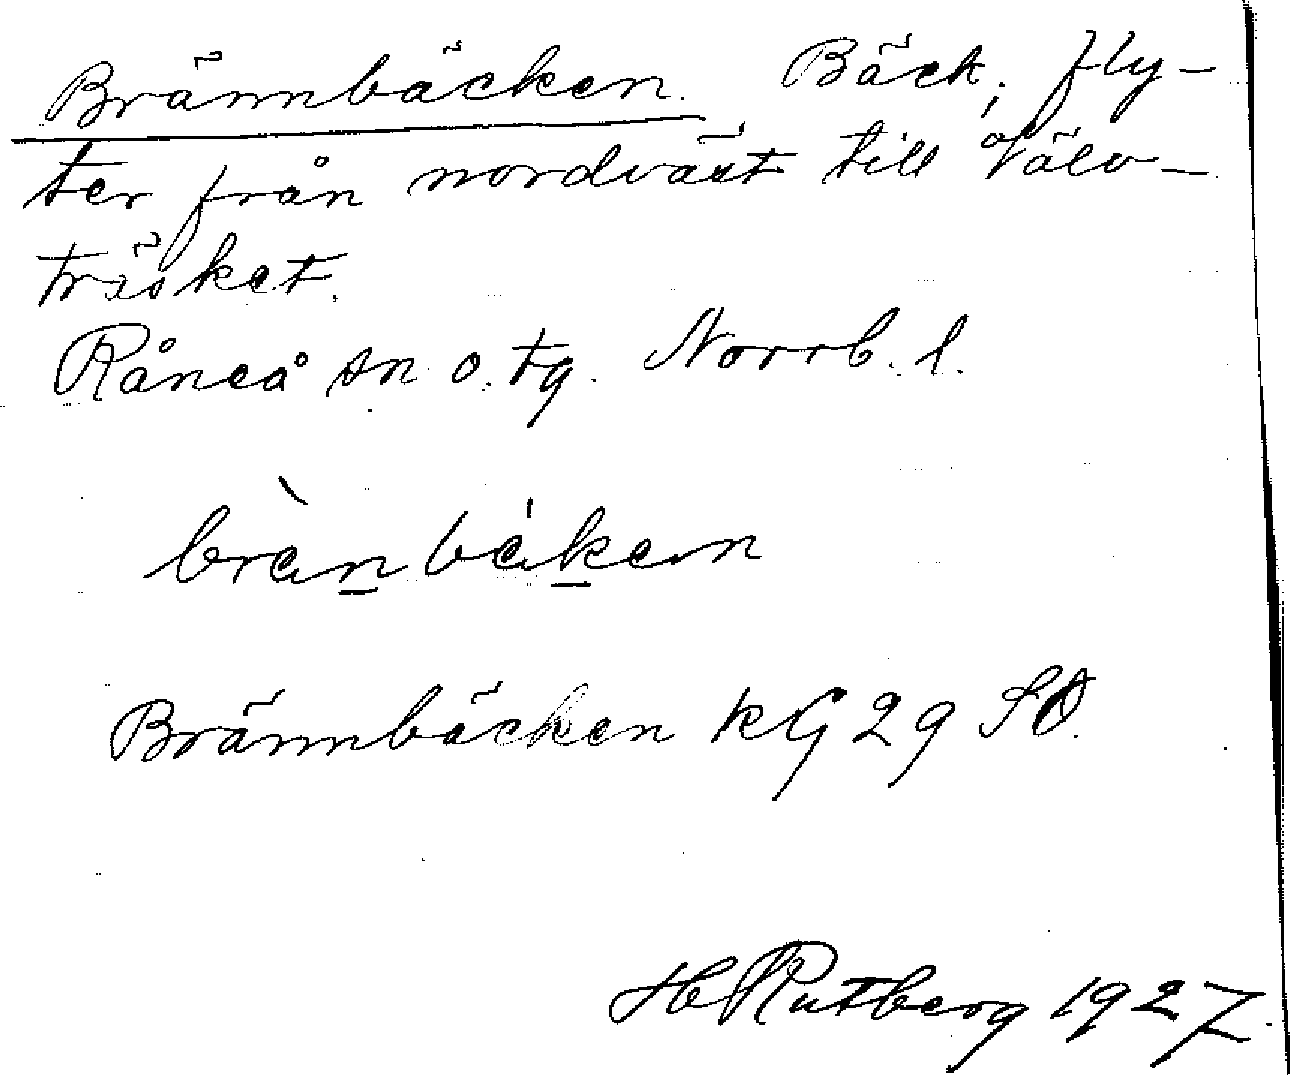 Brännbäcken. Bäck, fly-
ter från nordväst till Välv-
träsket.
Råneå sn o. tg. Norrb. l.
brànbékæn
Brännbäcken KG 29 SO.
H Rutberg 1927